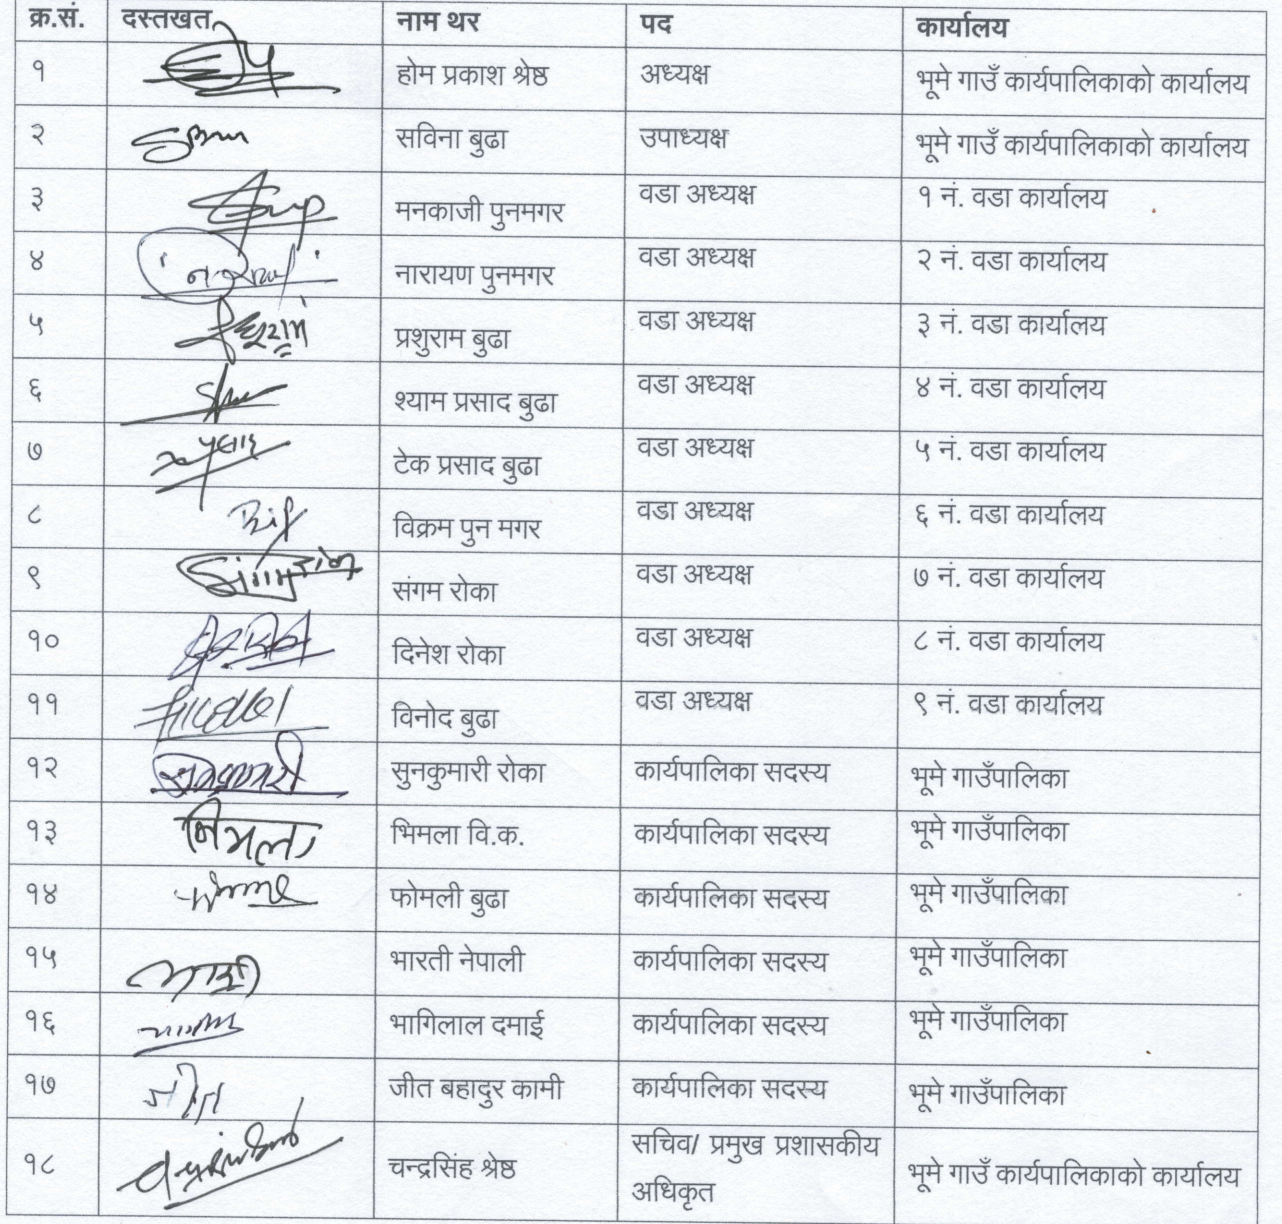 क्र.सं. दस्तखत नाम थर पद कार्यालय
१ होम प्रकाश श्रेष्ठ अध्यक्ष भूमे गाउँ कार्यपालिकाको कार्यालय
२ सविना बुढा उपाध्यक्ष भूमे गाउँ कार्यपालिकाको कार्यालय
३ मनकाजी पुनमगर वडा अध्यक्ष १ नं. वडा कार्यालय
४ नारायण पुनमगर वडा अध्यक्ष २ नं. वडा कार्यालय
५ प्रशुराम बुढा वडा अध्यक्ष ३ नं. वडा कार्यालय
६ श्याम प्रसाद बुढा वडा अध्यक्ष ४ नं. वडा कार्यालय
७ टेक प्रसाद बुढा वडा अध्यक्ष ५ नं. वडा कार्यालय
८ विक्रम पुन मगर वडा अध्यक्ष ६ नं. वडा कार्यालय
९ संगम रोका वडा अध्यक्ष ७ नं. वडा कार्यालय
१० दिनेश रोका वडा अध्यक्ष ८ नं. वडा कार्यालय
११ विनोद बुढा वडा अध्यक्ष ९ नं. वडा कार्यालय
१२ सुनकुमारी रोका कार्यपालिका सदस्य भूमे गाउँपालिका
१३ भिमला वि.क. कार्यपालिका सदस्य भूमे गाउँपालिका
१४ फोमली बुढा कार्यपालिका सदस्य भूमे गाउँपालिका
१५ भारती नेपाली कार्यपालिका सदस्य भूमे गाउँपालिका
१६ भागिलाल दमाई कार्यपालिका सदस्य भूमे गाउँपालिका
१७ जीत बहादुर कामी कार्यपालिका सदस्य भूमे गाउँपालिका
१८ चन्द्रसिंह श्रेष्ठ सचिव/ प्रमुख प्रशासकीय
अधिकृत भूमे गाउँ कार्यपालिकाको कार्यालय